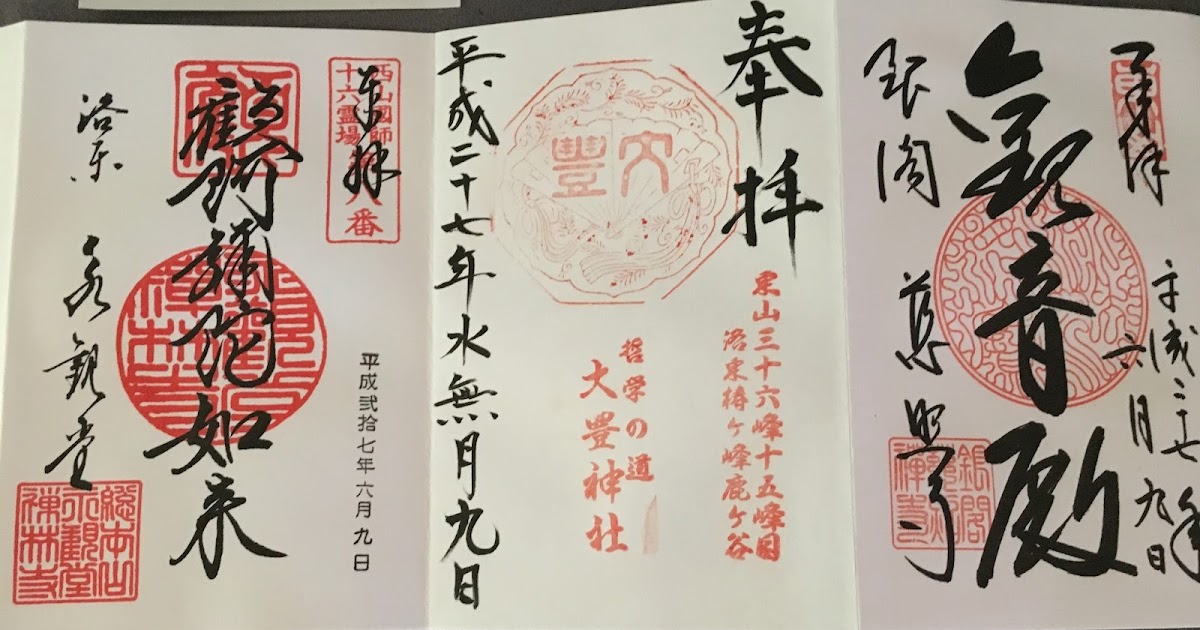 奉拝
平成二十七年
六月九日
観音殿
銀閣 慈照寺
銀閣
奉拝
大豊
東山三十六峰十五峰目
洛東椿ケ峰鹿ケ谷
哲学の道
大豊神社
平成二十七年水無月九日
奉拝
西山國師
十六霊場
八番
平成弐拾七年六月九日
阿弥陀如来
洛東 永観堂
総本山
永観堂
禅林寺